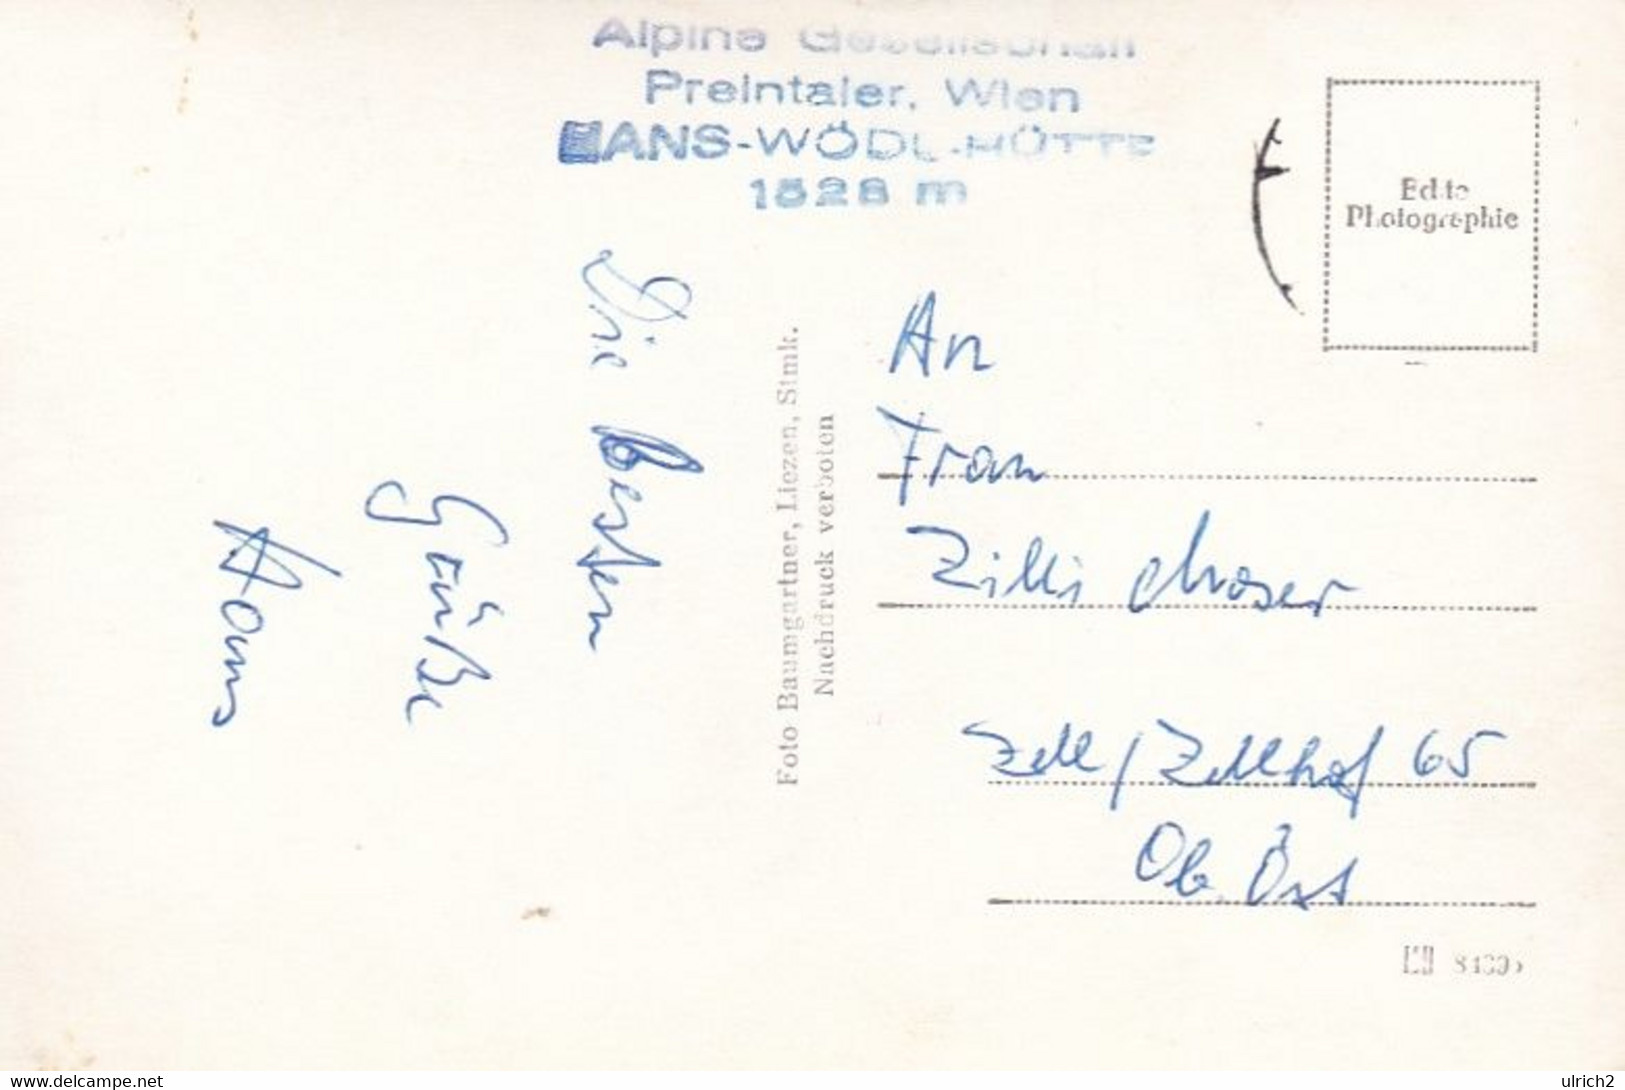 Alpine Gesellschaft
Preintaler, Wien
HANS-WÖDL-HÜTTE
1528 m
Echte
Photographie
Die Besten
Grüße
Hans
Foto Baumgartner, Liezen, Stmk.
Nachdruck verboten
An
Frau
Zilli Moser
Zell / Zellhof 65
Ob. Öst
www.delcampe.net
ulrich2